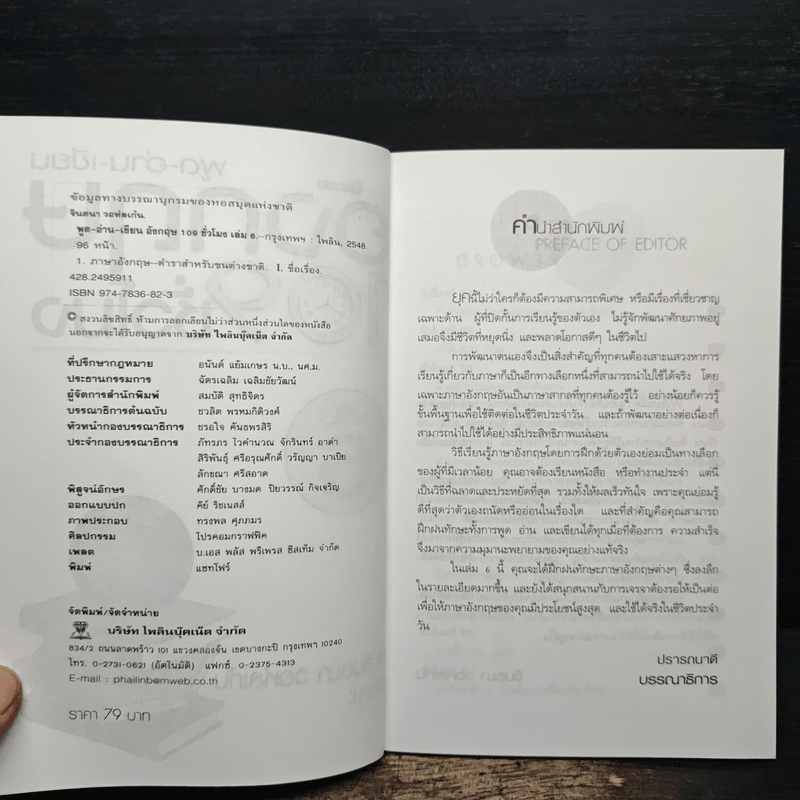 ข้อมูลทางบรรณานุกรมของหอสมุดแห่งชาติ
จินตนา วอทัลเก้น.
พูด-อ่าน-เขียน อังกฤษ 109 ชั่วโมง เล่ม 6.--กรุงเทพฯ : ไพลิน, 2548.
96 หน้า.
1. ภาษาอังกฤษ--ตำราสำหรับชนต่างชาติ. I. ชื่อเรื่อง.
428.2495911
ISBN 974-7836-82-3
© สงวนลิขสิทธิ์ ห้ามการลอกเลียนไม่ว่าส่วนหนึ่งส่วนใดของหนังสือ
นอกจากจะได้รับอนุญาตจาก บริษัท ไพลินบุ๊คเน็ต จำกัด
ที่ปรึกษากฎหมาย อนันต์ แย้มเกษร น.บ., นศ.ม.
ประธานกรรมการ ฉัตรเฉลิม เฉลิมชัยวัฒน์
ผู้จัดการสำนักพิมพ์ สมบัติ สุทธิจิตร
บรรณาธิการต้นฉบับ ชวลิต พรหมกิติวงศ์
หัวหน้ากองบรรณาธิการ ชรอใจ คันธพรสิริ
ประจำกองบรรณาธิการ ภัทรภร ไวคำนวณ จักรินทร์ อาดำ
สิริพันธุ์ ศรีอรุณศักดิ์ วรัญญา บาเปีย
ลักขณา ศรีสอาด
พิสูจน์อักษร ศักดิ์ชัย บางมด ปิยวรรณ์ กิจเจริญ
ออกแบบปก คีย์ ริชเนสส์
ภาพประกอบ ทรงพล ศุภภมร
ศิลปกรรม โปรคอมกราฟฟิค
เพลต บ.เอส พลัส พรีเพรส ซิสเท็ม จำกัด
พิมพ์ แซทโฟร์
จัดพิมพ์/จัดจำหน่าย
บริษัท ไพลินบุ๊คเน็ต จำกัด
834/2 ถนนลาดพร้าว 101 แขวงคลองจั่น เขตบางกะปิ กรุงเทพฯ 10240
โทร. 0-2731-0621 (อัตโนมัติ) แฟกซ์. 0-2375-4313
E-mail : phailinb@mweb.co.th
ราคา 79 บาท
คำนำสำนักพิมพ์
PREFACE OF EDITOR
ยุคนี้ไม่ว่าใครก็ต้องมีความสามารถพิเศษ หรือมีเรื่องที่เชี่ยวชาญ
เฉพาะด้าน ผู้ที่ปิดกั้นการเรียนรู้ของตัวเอง ไม่รู้จักพัฒนาศักยภาพอยู่
เสมอจึงมีชีวิตที่หยุดนิ่ง และพลาดโอกาสดีๆ ในชีวิตไป
การพัฒนาตนเองจึงเป็นสิ่งสำคัญที่ทุกคนต้องเสาะแสวงหาการ
เรียนรู้เกี่ยวกับภาษาก็เป็นอีกทางเลือกหนึ่งที่สามารถนำไปใช้ได้จริง โดย
เฉพาะภาษาอังกฤษอันเป็นภาษาสากลที่ทุกคนต้องรู้ไว้ อย่างน้อยก็ควรรู้
ขั้นพื้นฐานเพื่อใช้ติดต่อในชีวิตประจำวัน และถ้าพัฒนาอย่างต่อเนื่องก็
สามารถนำไปใช้ได้อย่างมีประสิทธิภาพแน่นอน
วิธีเรียนรู้ภาษาอังกฤษโดยการฝึกด้วยตัวเองย่อมเป็นทางเลือก
ของผู้ที่มีเวลาน้อย คุณอาจต้องเรียนหนังสือ หรือทำงานประจำ แต่นี่
เป็นวิธีที่ฉลาดและประหยัดที่สุด รวมทั้งให้ผลเร็วทันใจ เพราะคุณย่อมรู้
ดีที่สุดว่าตัวเองถนัดหรืออ่อนในเรื่องใด และที่สำคัญคือคุณสามารถ
ฝึกฝนทักษะทั้งการพูด อ่าน และเขียนได้ทุกเมื่อที่ต้องการ ความสำเร็จ
จึงมาจากความมุมานะพยายามของคุณอย่างแท้จริง
ในเล่ม 6 นี้ คุณจะได้ฝึกฝนทักษะภาษาอังกฤษต่างๆ ซึ่งลงลึก
ในรายละเอียดมากขึ้น และยังได้สนุกสนานกับการเจรจาต้องรอให้เป็นต่อ
เพื่อให้ภาษาอังกฤษของคุณมีประโยชน์สูงสุด และใช้ได้จริงในชีวิตประจำ
วัน
ปรารถนาดี
บรรณาธิการ